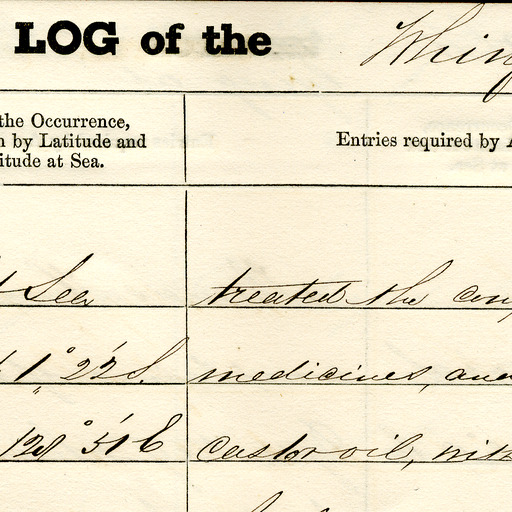 LOG of the
the Occurrence,
by Latitude and
itude at Sea.
Entries required by
Sea
treated the
1° 22' S.
medicines,
51 E
castor oil,